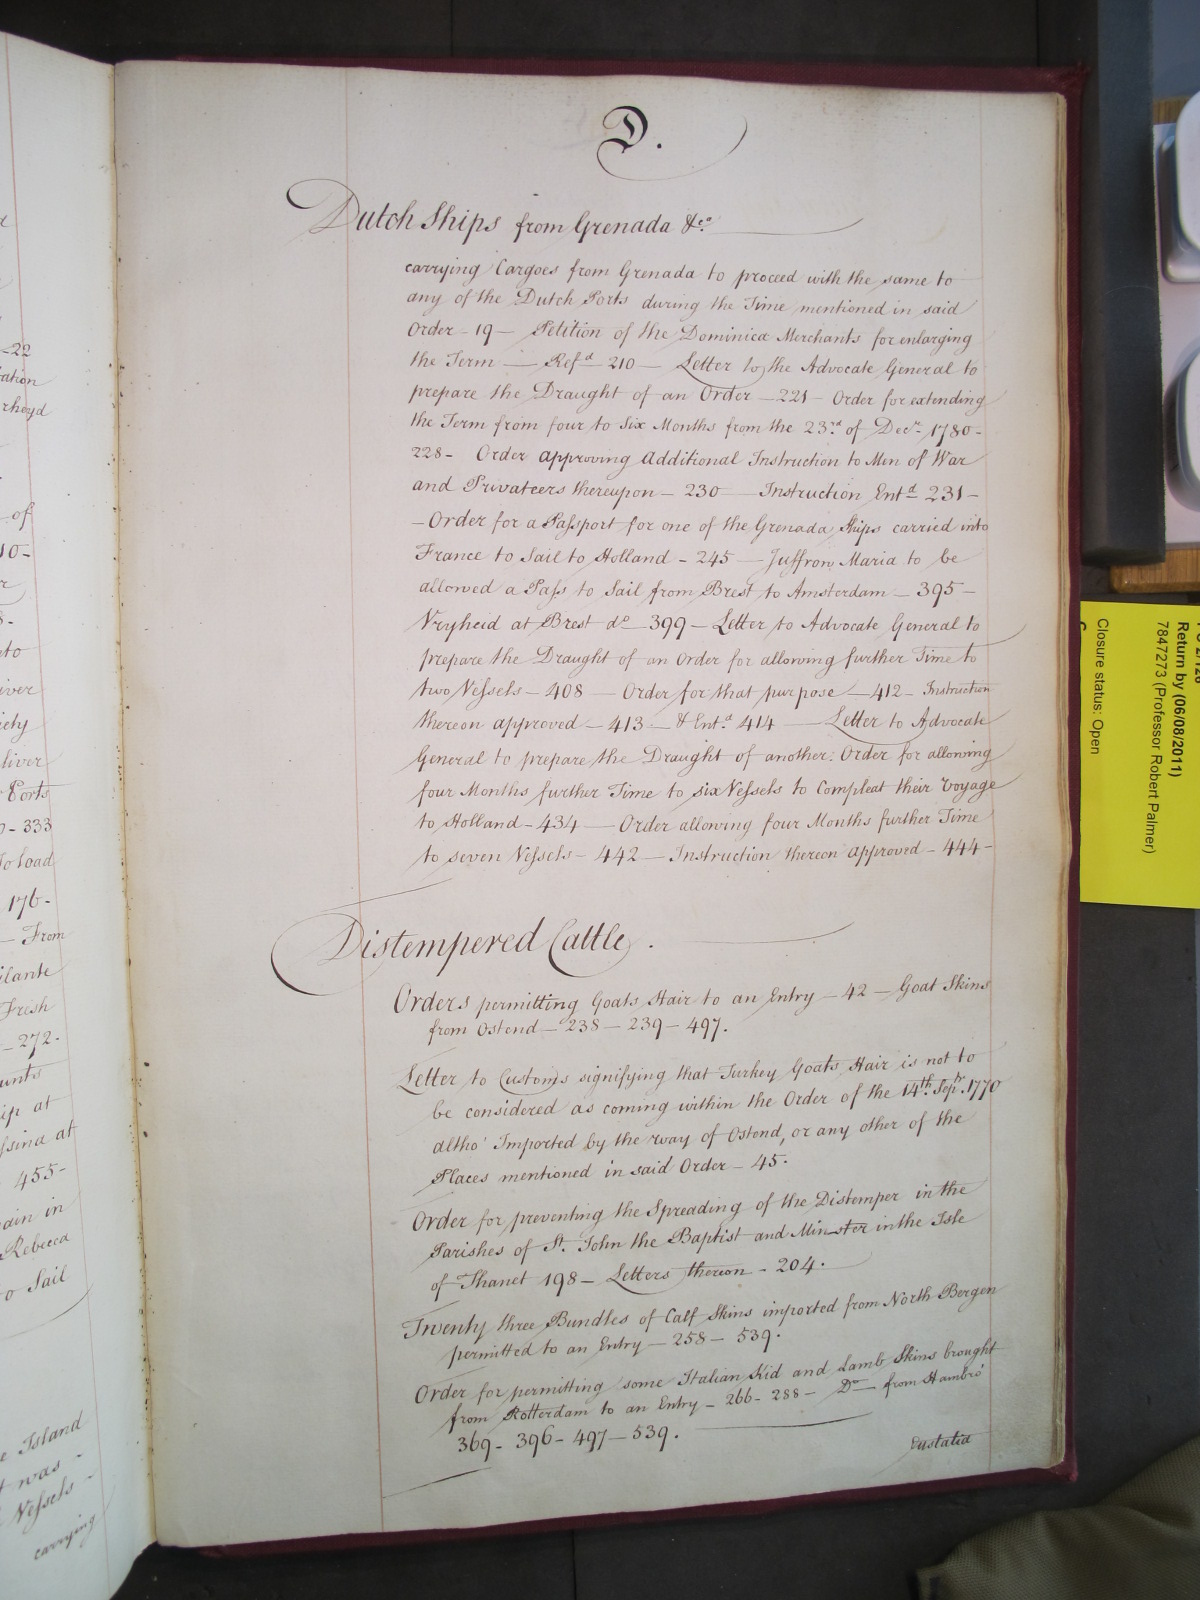 22
ation
rheyd
of
10-
nto
iver
iety
liver
Ports
- 333
To load
176-
- From
ilante
Fresh
- 272.
unts
ip at
ssina at
455-
ain in
Rebecca
to Sail
e Island
t was -
Vessels -
carrying
D.
Dutch Ships from Grenada &ca.
carrying Cargoes from Grenada to proceed with the same to
any of the Dutch Ports during the Time mentioned in said
Order - 19 - Petition of the Dominica Merchants for enlarging
the Term - Refd 210 - Letter to the Advocate General to
prepare the Draught of an Order - 221 - Order for extending
the Term from four to Six Months from the 23rd of Decr. 1780 -
228 - Order approving Additional Instruction to Men of War
and Privateers thereupon - 230 - Instruction Entd 231 -
- Order for a Passport for one of the Grenada Ships carried into
France to Sail to Holland - 245 - Juffrow Maria to be
allowed a Pass to Sail from Brest to Amsterdam - 395 -
Vryheid at Brest do - 399 - Letter to Advocate General to
prepare the Draught of an Order for allowing further Time to
two Vessels - 408 - Order for that purpose - 412 - Instruction
thereon approved - 413 - & Entd. 414 - Letter to Advocate
General to prepare the Draught of another Order for allowing
four Months further Time to six Vessels to Compleat their Voyage
to Holland - 434 - Order allowing four Months further Time
to seven Vessels - 442 - Instruction thereon approved - 444 -
Distempered Cattle.
Orders permitting Goats Hair to an Entry - 42 - Goat Skins
from Ostend - 238 - 239 - 497.
Letter to Customs signifying that Turkey Goats Hair is not to
be considered as coming within the Order of the 14th. Sepr. 1770
altho' Imported by the way of Ostend, or any other of the
Places mentioned in said Order - 45.
Order for preventing the Spreading of the Distemper in the
Parishes of St. John the Baptist and Minster in the Isle
of Thanet 198 - Letters thereon - 204.
Twenty three Bundles of Calf Skins imported from North Bergen
permitted to an Entry - 258 - 539.
Order for permitting some Italian Kid and Lamb Skins brought
from Rotterdam to an Entry - 266 - 288 - Do - from Hambro'
369 - 396 - 497 - 539.
Eustatia
Return by (06/08/2011)
7847273 (Professor Robert Palmer)
Closure status: Open